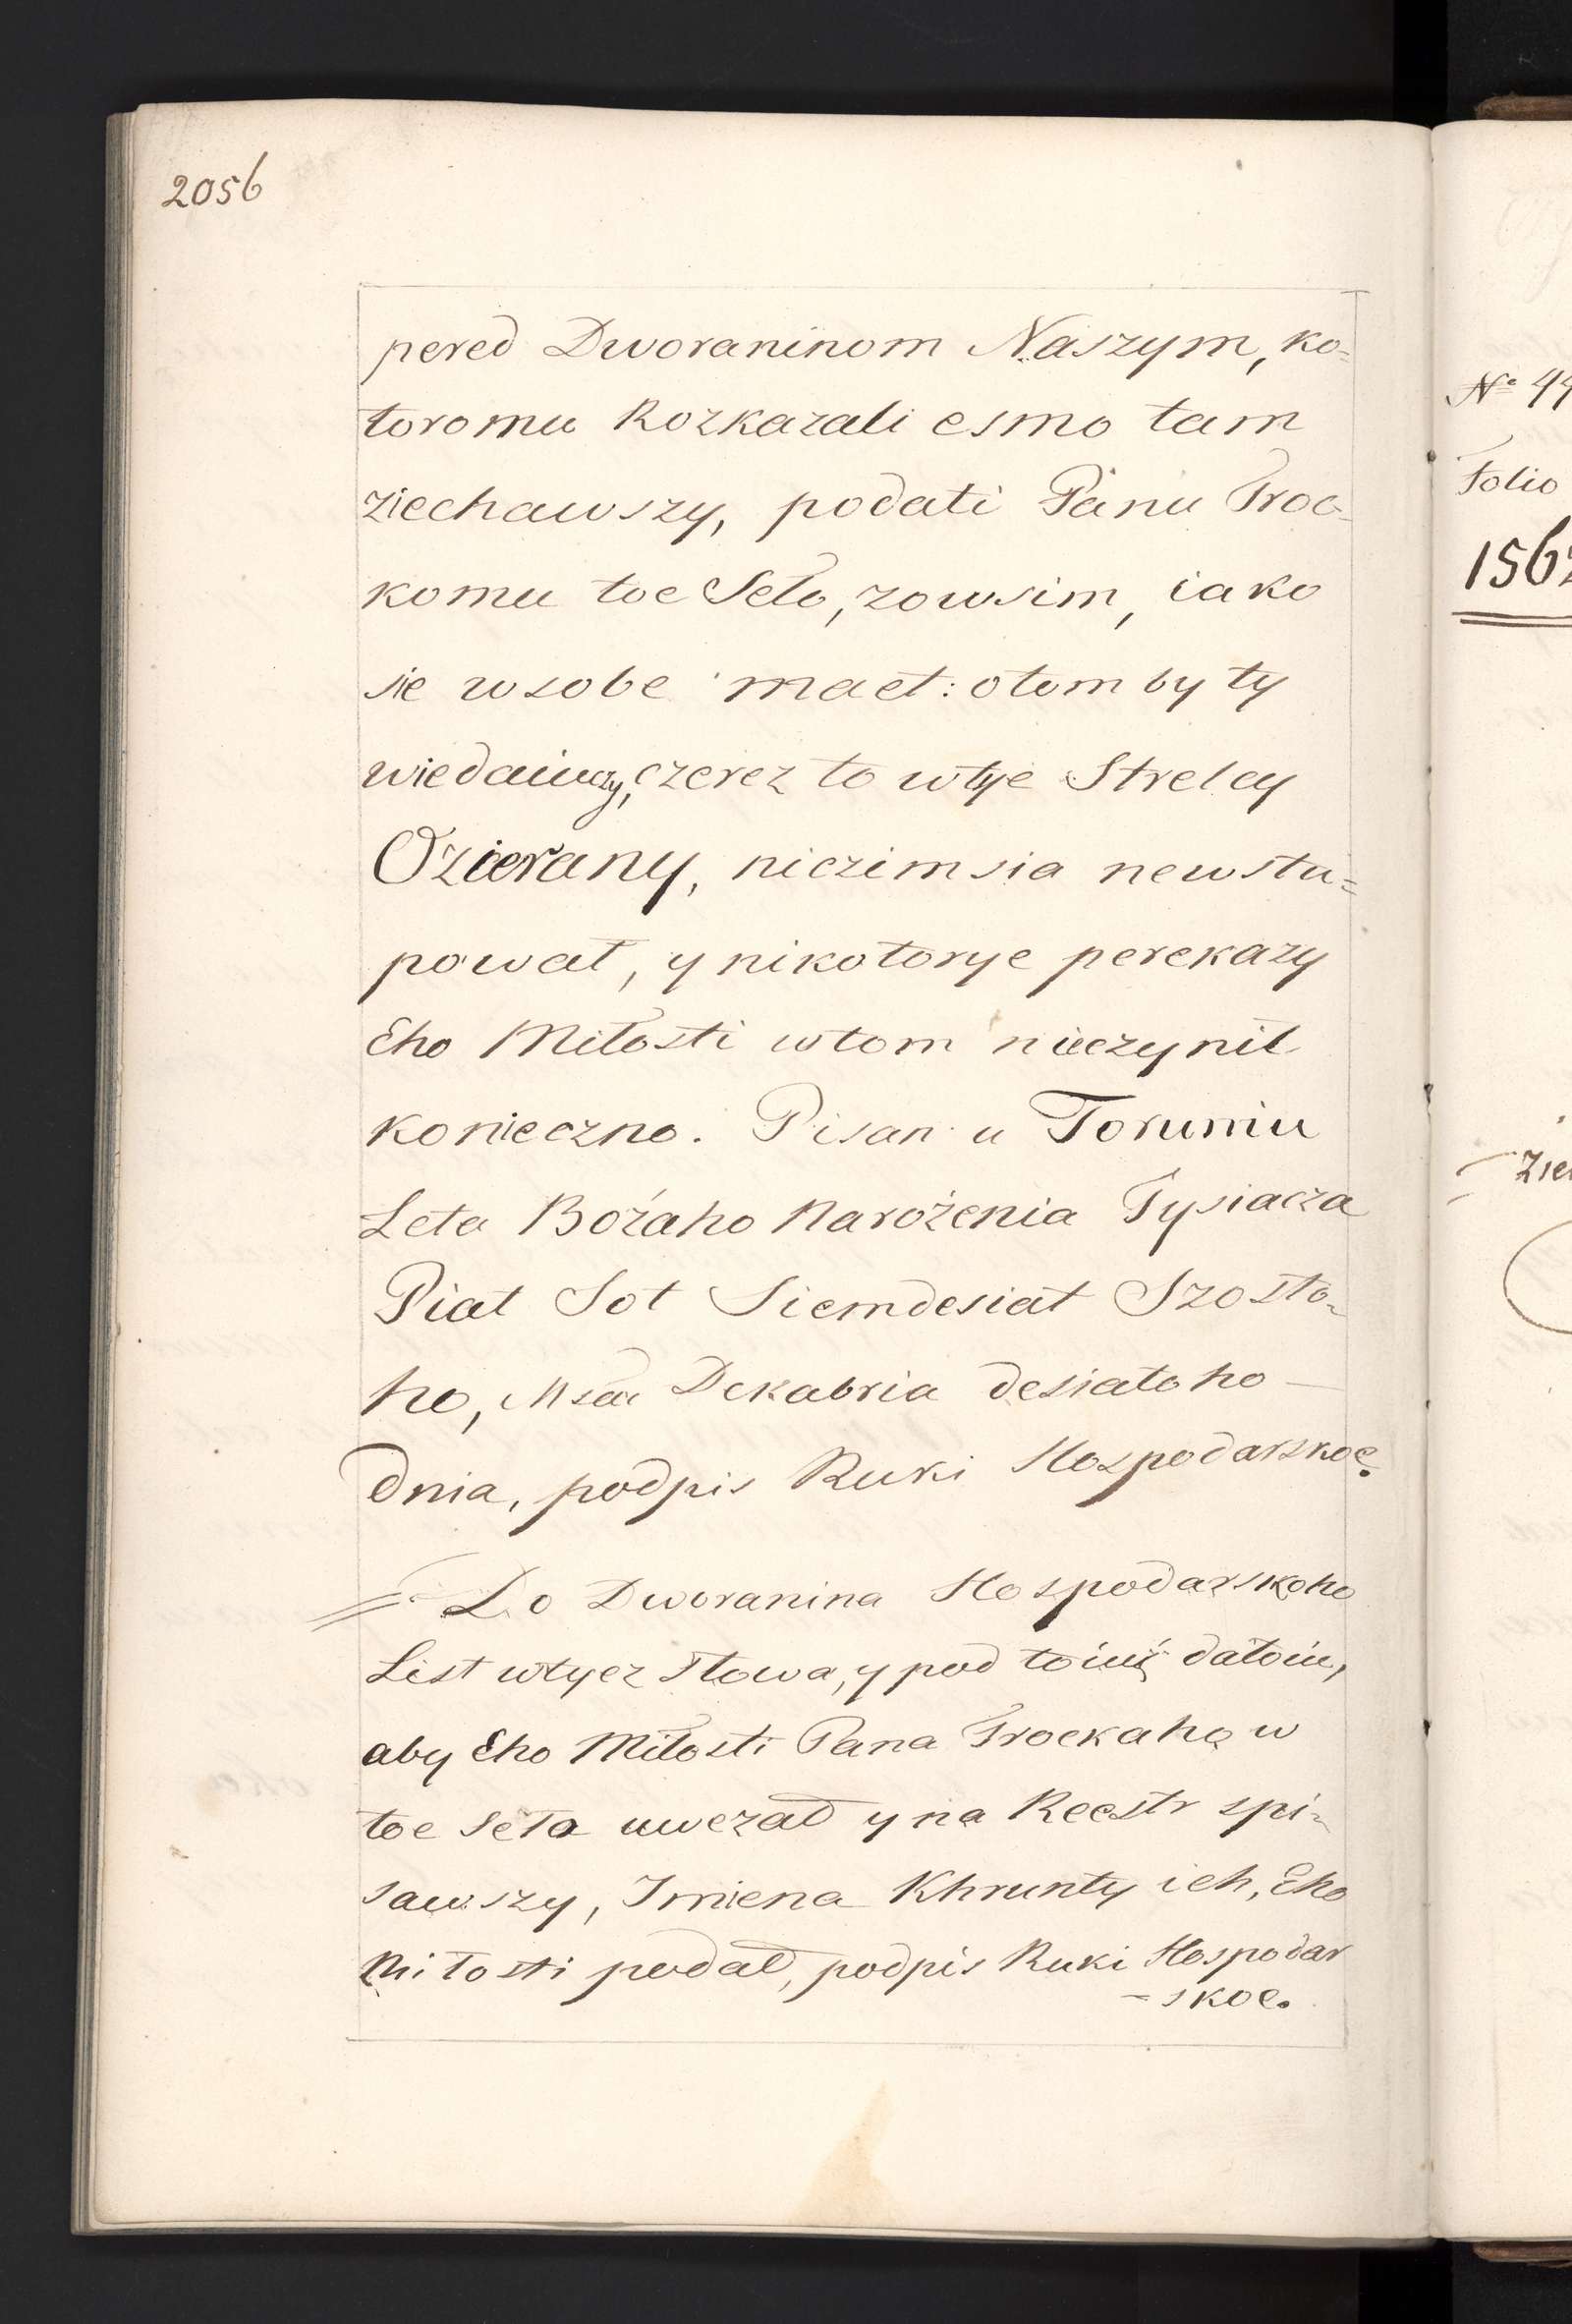 2056
pered Dworaninom Naszym, ko=
toromu Rozkazali esmo tam
ziechawszy, podati Panu Troc-
komu toe Seło, zowsim, iako
sie wsobe maet: otom by ty
wiedaiuczy, czerez to wtye Strelcy
Ozierany, niczim sia newstu=
pował, y nikotorye perekazy
Eho Miłosti wtom nieczynił
konieczno. Pisan u Toruniu
Leta Bożaho Narożenia Tysiacza
Piat Sot Siemdesiat Szosto=
ho, Msca Dekabria desiatoho —
dnia, podpis Ruki Hospodarskoe.
Do Dworanina Hospodarskoho
List wtyez słowa, y pod toiuż datoiu,
aby Eho Miłosti Pana Trockaho w
toe Seło uwezał y na Reestr spi=
sawszy, Imiena Khrunty ich, Eho
Miłosti podał, podpis Ruki Hospodar
= skoe.
Nº 44
Folio
156
Zie